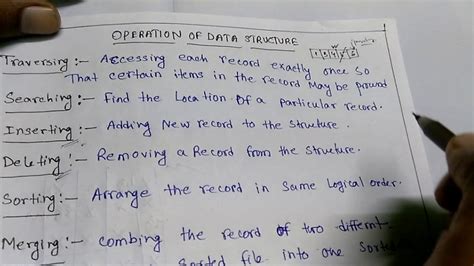 OPERATION OF DATA STRUCTURE
Traversing :- Accessing each record exactly once so
That certain items in the record May be
Searching :- Find the Location Of a particular record.
Inserting :- Adding New record to the Structure.
Deleting :- Removing a Record from the Structure.
Sorting :- Arrange the record in Some Logical order.
Merging :- combing the record Of two differnt
Sorted file into one Sorted